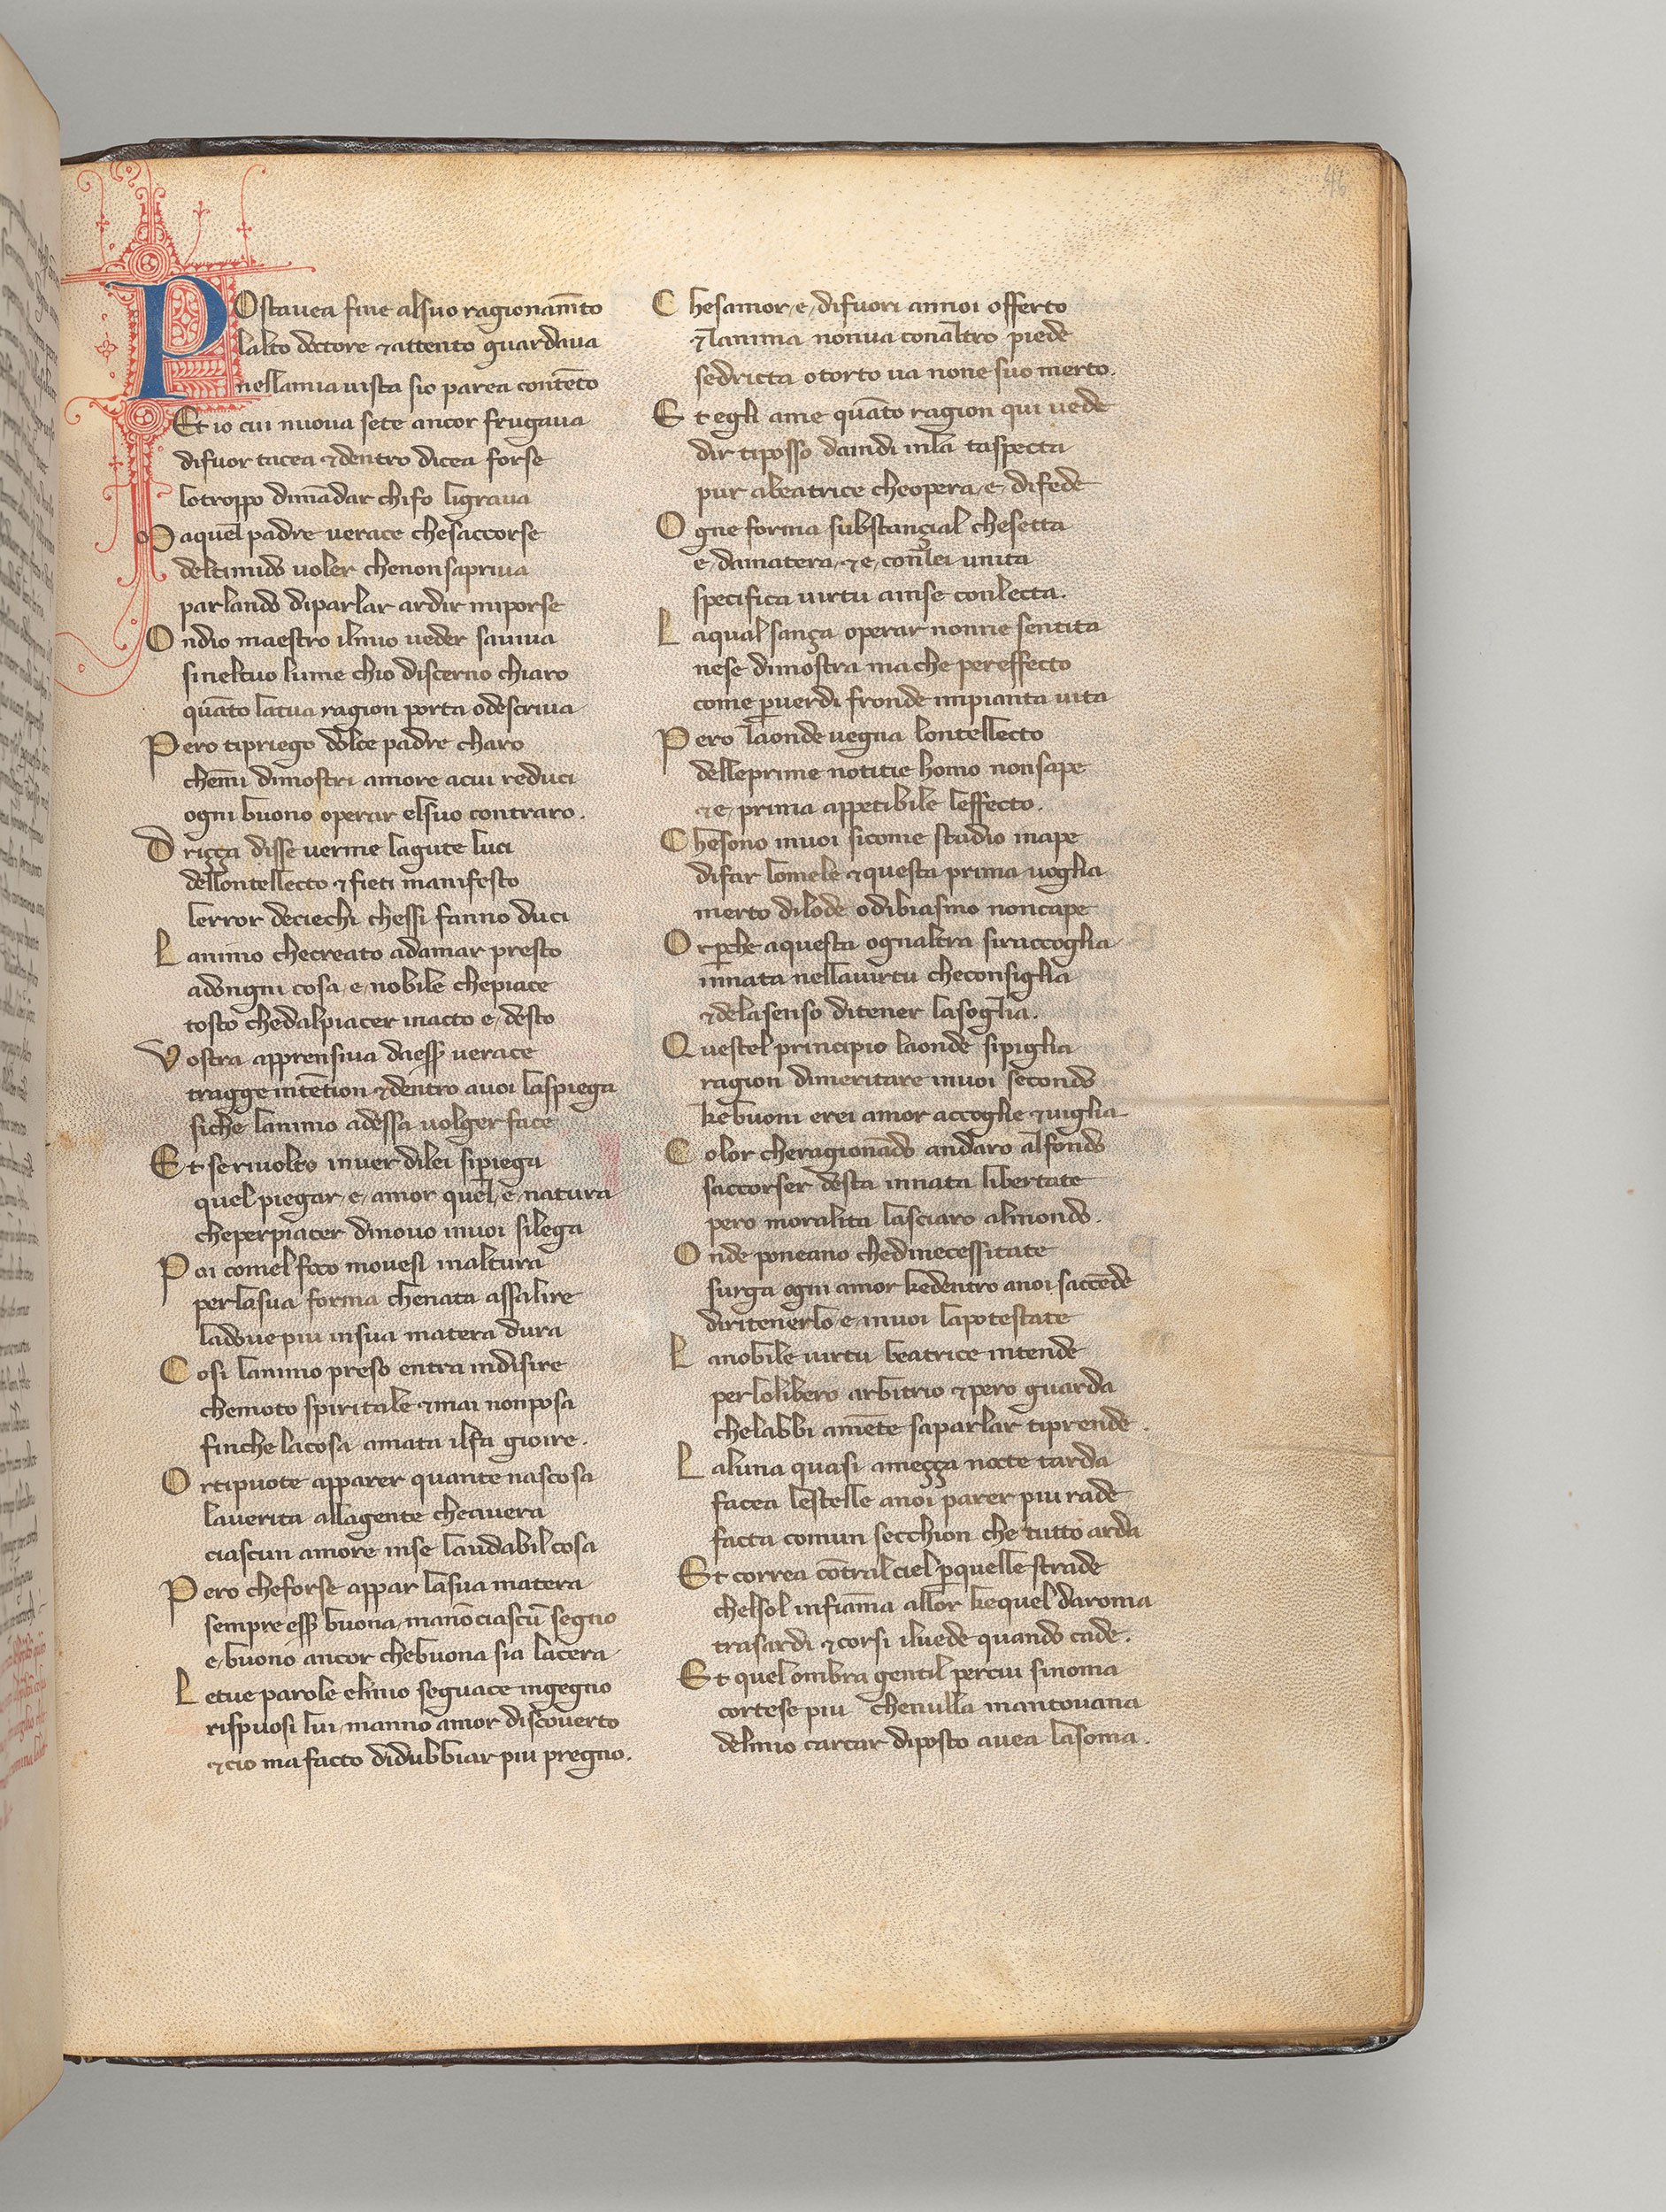 46
POstauea fine alsuo ragionam̄to
lalto doctore ⁊ attento guardaua
nellamia uista sio parea contēto
Et io cui nuoua sete ancor frugaua
difuor tacea ⁊ dentro dicea forse
lotroppo dimādar chifo ligraua
Maquel padre uerace chesaccorse
deltimido uoler chenonsapriua
parlando diparlar ardir miporse
Ondio maestro ilmio ueder sauiua
sineltuo lume chio discerno chiaro
quāto latua ragion porta odescriua
Pero tipriego dolce padre charo
chem̄i dimostri amore acui reduci
ogni buono operar elsuo contraro.
Driçça disse uerme lagute luci
dellontellecto ⁊ fieti manifesto
lerror deciechi chessi fanno duci
Lanimo checreato adamar presto
adongni cosa e nobile chepiace
tosto chedalpiacer inacto e desto
Vostra apprensiua daess̄ uerace
tragge intētion ⁊ dentro auoi laspiega
siche lanimo adessa uolger face
Et seriuolto inuer dilei sipiega
quel piegar e amor quel e natura
cheperpiacer dinouo inuoi silega
Poi comel foco mouesi inaltura
perlasua forma chenata assalire
ladoue piu insua matera dura
Cosi lanimo preso entra indisire
chemoto spiritale ⁊ mai nonposa
finche lacosa amata ilfa gioire.
Ortipuote apparer quante nascosa
lauerita allagente cheauera
ciascun amore inse laudabil cosa
Pero cheforse appar lasua matera
sempre ess̄ buona manōciascū segno
e buono ancor chebuona sia lacera
Letue parole elmio seguace ingegno
rispuosi lui manno amor discouerto
⁊ cio mafacto didubbiar piu pregno.
Chesamor e difuori annoi offerto
⁊ lanima nonua conaltro piede
sedricta otorto ua none suo merto.
Et egli ame quāto ragion qui uede
dir tiposso daindi inla taspecta
pur abeatrice cheopera e difede
Ogne forma substançial chesetta
e damatera ⁊ e conlei unita
specifica uirtu ainse conlecta.
Laqual sança operar nonne sentita
nese dimostra ma che pereffecto
come ꝑuerdi fronde inpianta uita
Pero laonde uegna lontellecto
delleprime notitie homo nonsape
⁊ e prima appetibile leffecto.
Chesono inuoi sicome studio inape
difar lomele ⁊ questa prima uoglia
merto dilode odibiasmo noncape
Orꝑche aquesta ognaltra siraccoglia
innata nellauirtu checonsiglia
⁊ delasenso ditener lasoglia.
Questel principio laonde sipiglia
ragion dimeritare inuoi secondo
kebuoni erei amor accoglie ⁊ uiglia
Color cheragionādo andaro alfondo
saccorser desta innata libertate
pero moralita lasciaro almondo.
Onde poneano chedinecessitate
surga ogni amor kedentro anoi saccēde
diritenerlo e inuoi lapotestate
Lanobile uirtu beatrice intende
perlolibero arbitrio ⁊ pero guarda
chelabbi amēte saparlar tiprende.
Laluna quasi ameçça nocte tarda
facea lestelle anoi parer piu rade
facta comun secchion che tutto arda
Et correa cōtral ciel ꝑquelle strade
chelsol infiām̄a allor kequel daroma
trasardi ⁊ corsi iluede quando cade.
Et quelombra gentil percui sinoma
cortese piu chenulla mantouana
delmio carcar diposto auea lasoma.